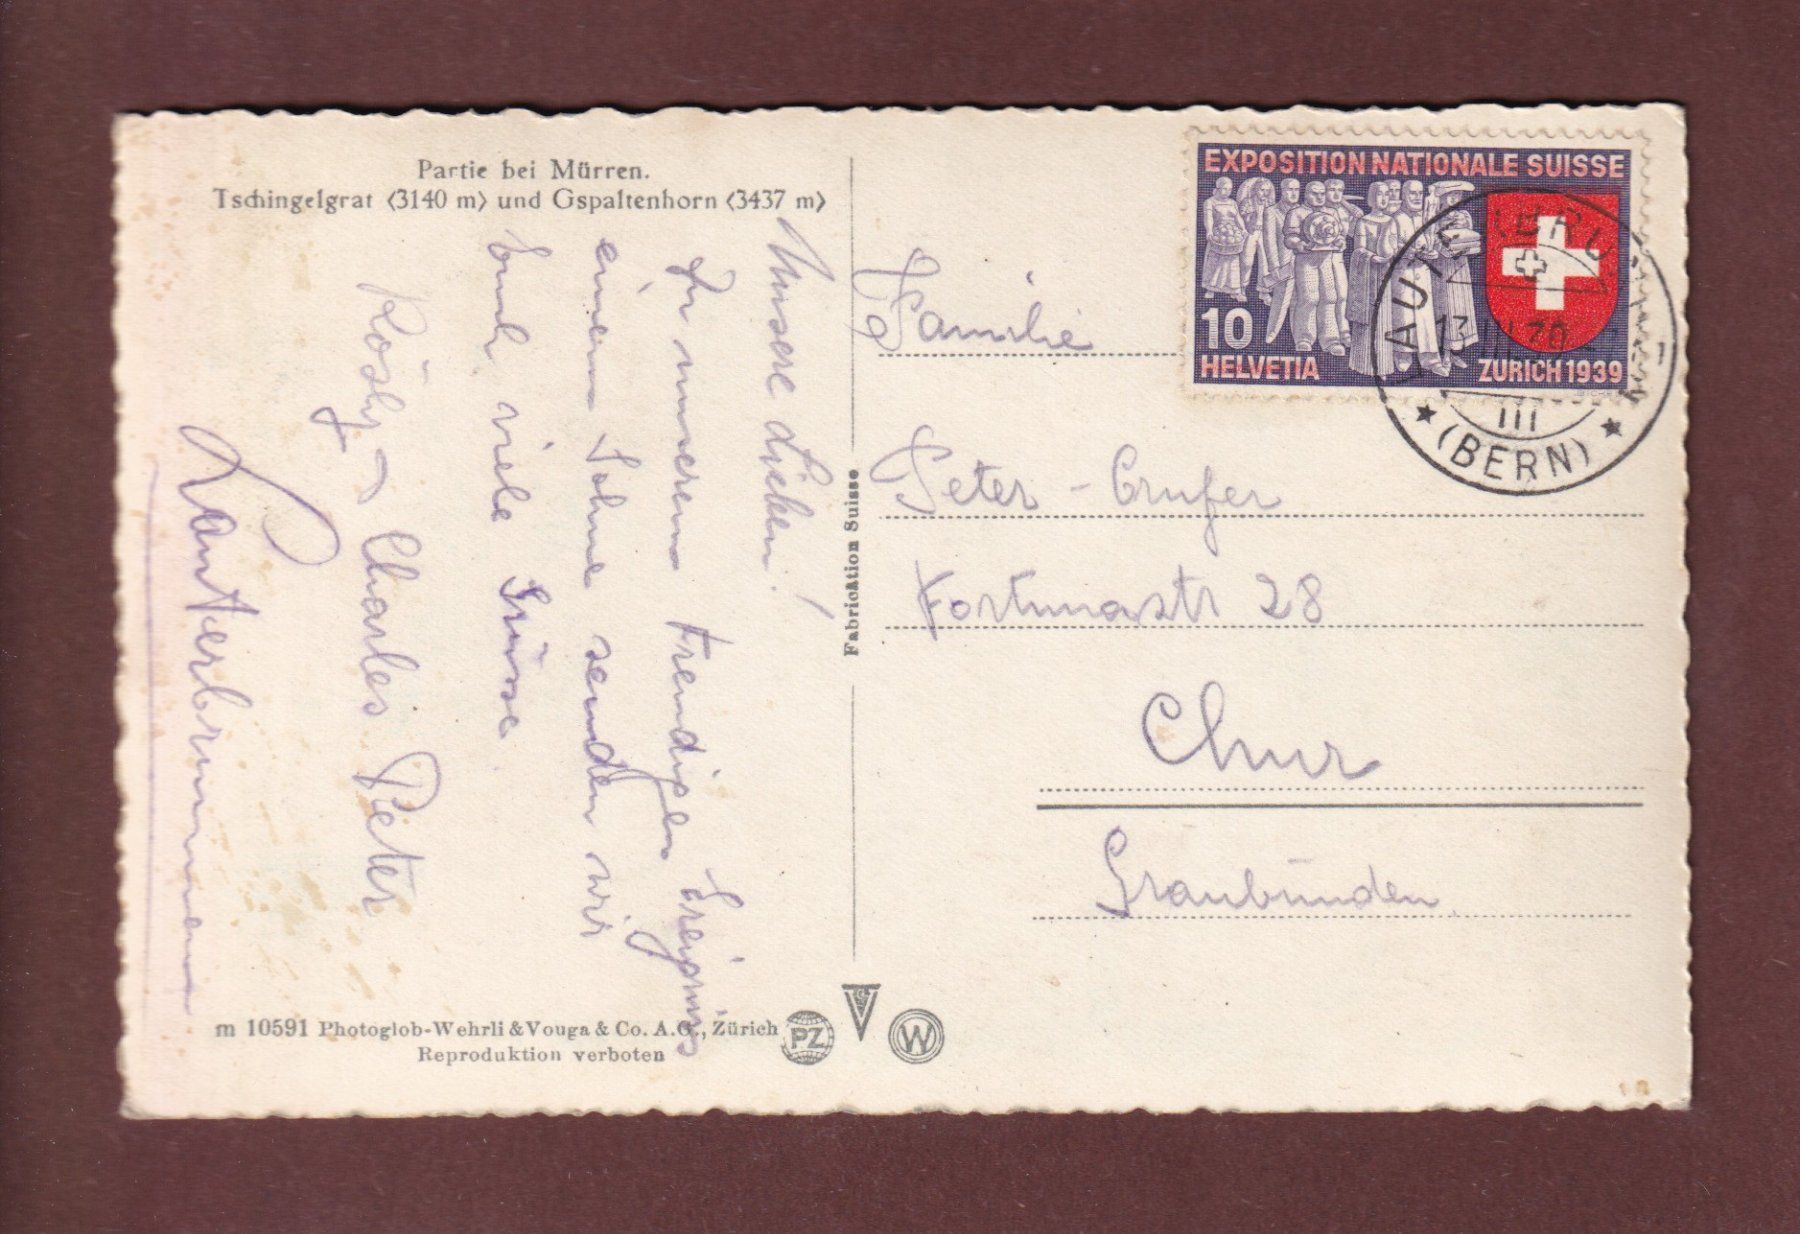 Partie bei Mürren.
Tschingelgrat (3140 m) und Gspaltenhorn (3437 m)
Unsere Lieben!
Zu unserem freudigen Ereignis
einem Sohne senden wir
Euch viele Grüsse
Rösly Charles Peter
Lauterbrunnen
m 10591 Photoglob-Wehrli & Vouga & Co. A.G., Zürich
Reproduktion verboten
PZ
V
W
Fabrication Suisse
EXPOSITION NATIONALE SUISSE
10
HELVETIA
ZÜRICH 1939
LAUTERBRUNNEN
13 39
III
(BERN)
Familie
Peter -
Fortunastr 28
Chur
Graubünden